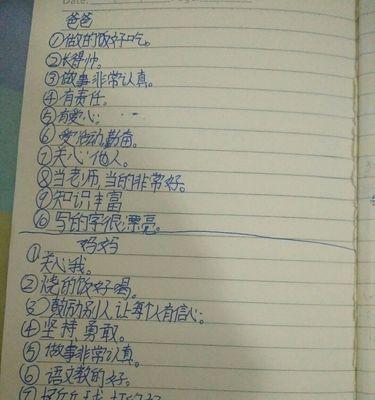 Date:
爸爸
①做的饭好吃。
②长得帅。
③做事非常认真。
④有责任。
⑤有爱心;
⑥爱运动,勤奋。
⑦关心他人。
⑧当老师,当的非常好。
⑨知识丰富
⑩写的字很漂亮。
妈妈
①关心我。
②烧的饭好喝。
③鼓励别人,让每个人有信心;
④坚持,勇敢。
⑤做事非常认真。
⑥语文教的好。